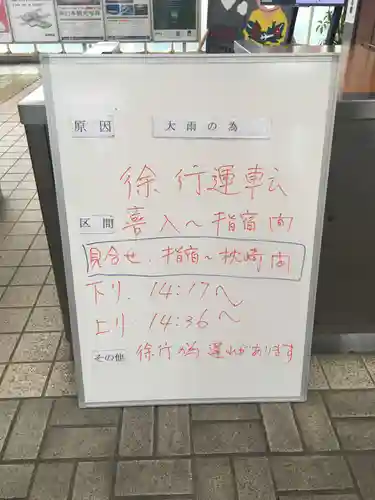 原因 大雨の為
徐行運転
区間 喜入〜指宿間
見合せ. 指宿〜枕崎間
下り. 14:17〜
上り. 14:36〜
その他 徐行の為 遅れがあります